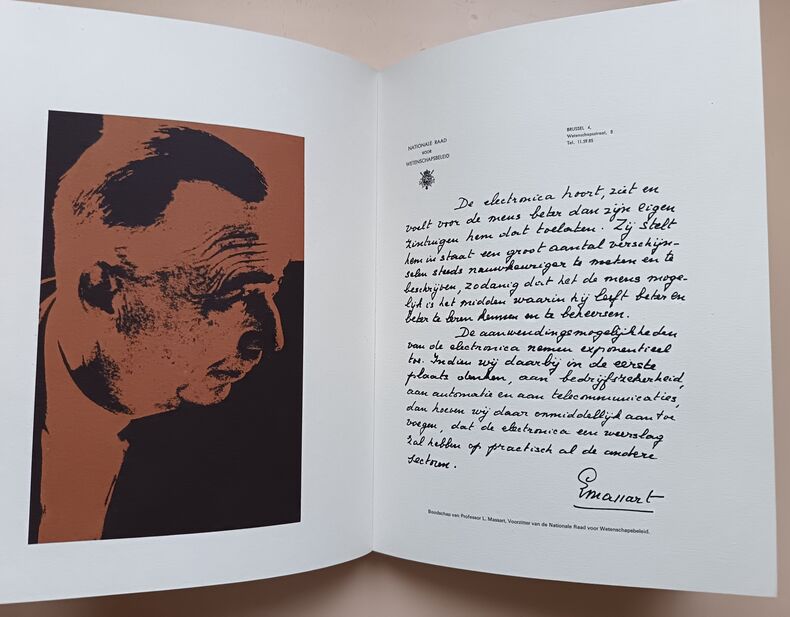 NATIONALE RAAD
VOOR
WETENSCHAPSBELEID
BRUSSEL 4,
Wetenschapsstraat, 8
Tel. 11.59.85
De electronica hoort, ziet en
voelt voor de mens beter dan zijn eigen
zintuigen hem dat toelaten. Zij stelt
hem in staat een groot aantal verschijn-
selen steeds nauwkeuriger te meten en te
beschrijven, zodanig dat het de mens moge-
lijk is het midden waarin hij leeft beter en
beter te leren kennen en te beheersen.
De aanwendingsmogelijkheden
van de electronica nemen exponentieel
toe. Indien wij daarbij in de eerste
plaats denken, aan bedrijfszekerheid,
aan automatie en aan telecommunicaties,
dan hoeven wij daar onmiddellijk aan toe
voegen, dat de electronica een weerslag
zal hebben op practisch al de andere
sectoren.
LMassart
Boodschap van Professor L. Massart, Voorzitter van de Nationale Raad voor Wetenschapsbeleid.